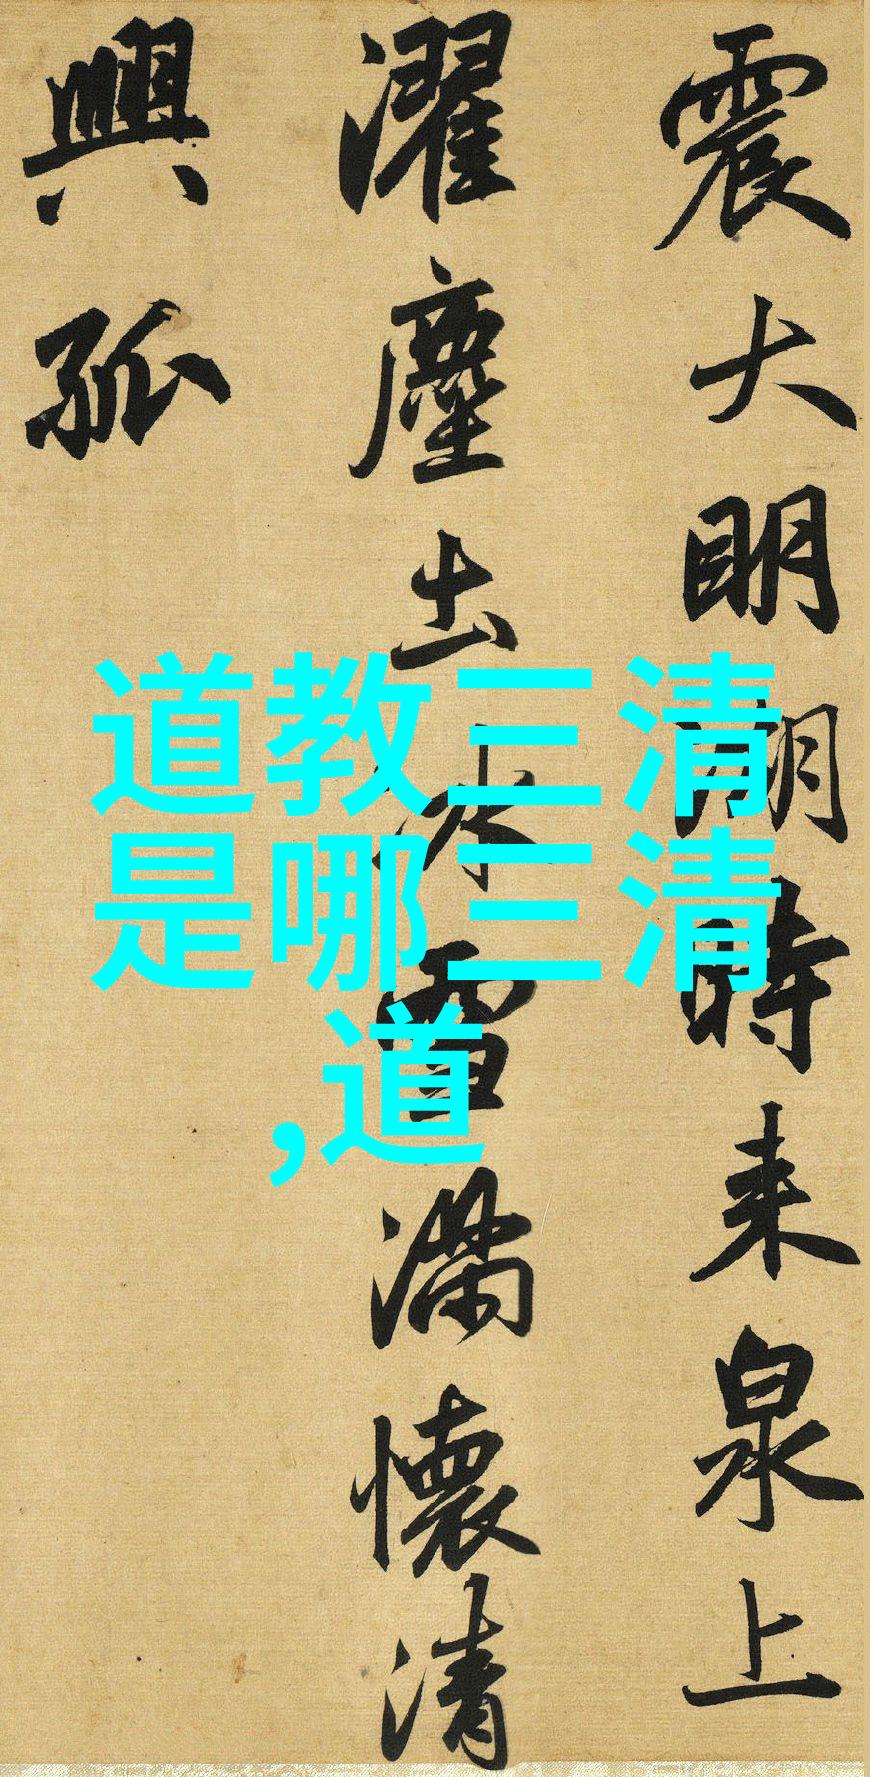 震大明湖時来泉上
濯塵土冰雪滿懷清
興孤
道教三清
是哪三清
,道